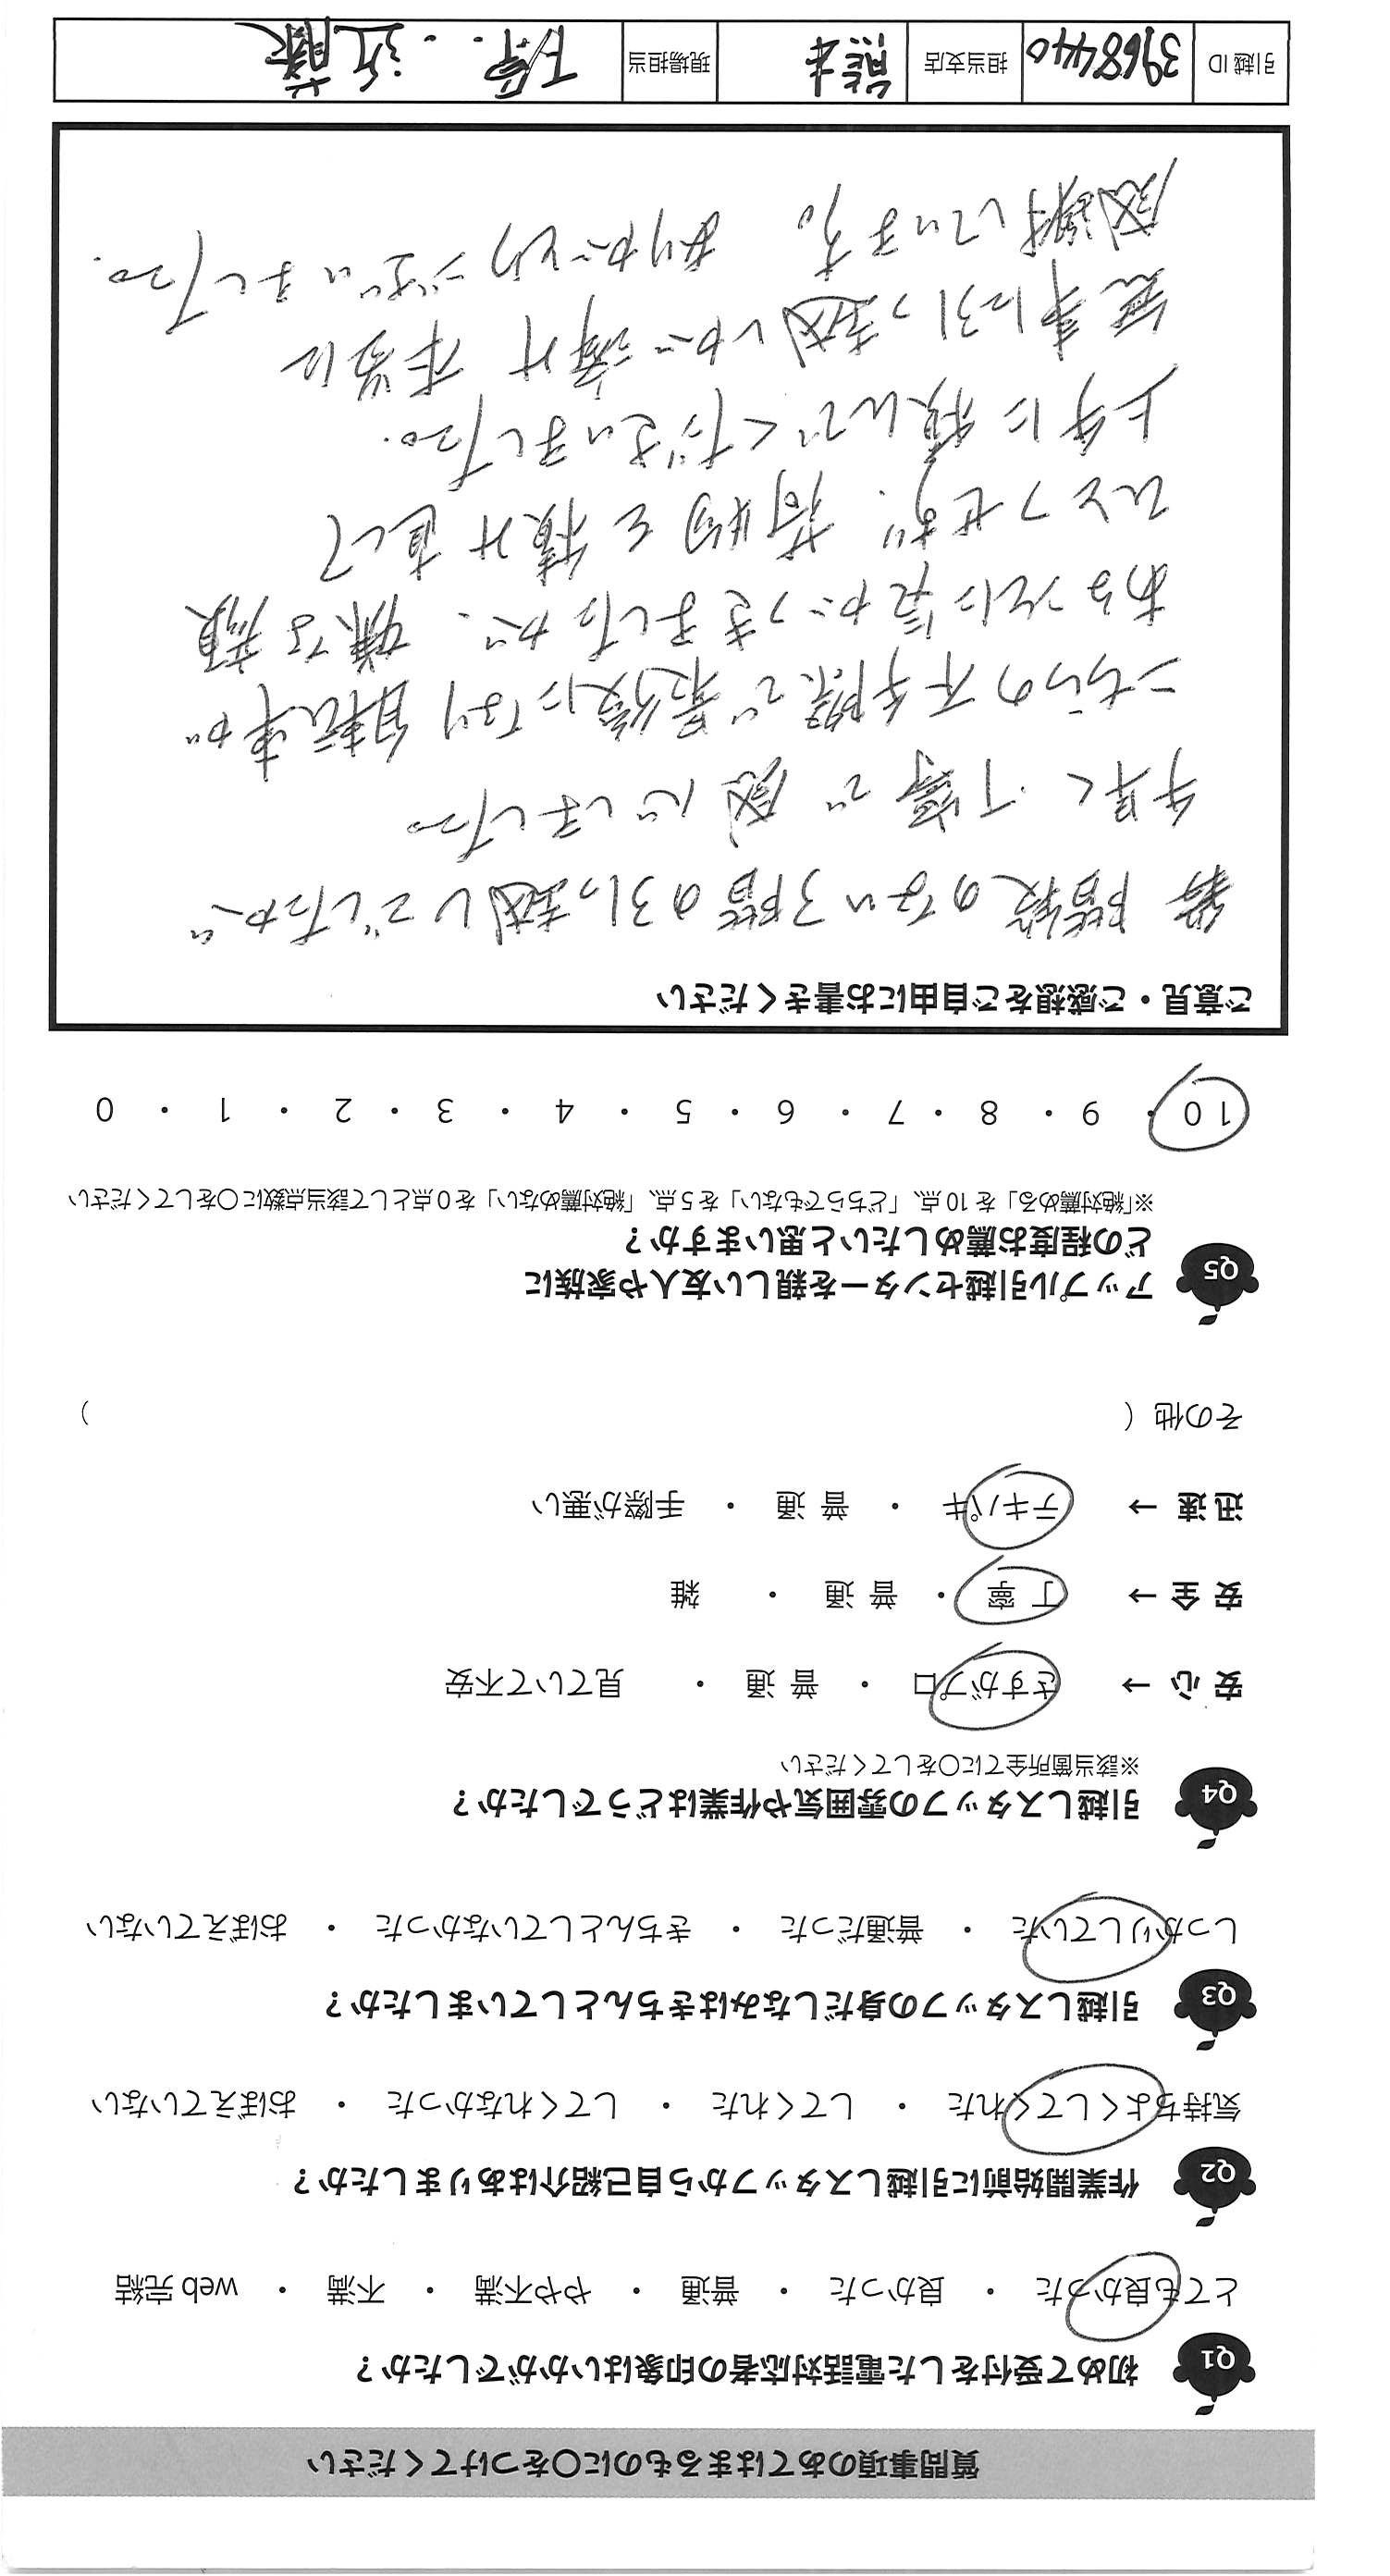 質問事項のあてはまるものに○をつけてください
Q1 初めて受付をした電話対応者の印象はいかがでしたか?
とても良かった ・ 良かった ・ 普通 ・ やや不満 ・ 不満 ・ web 完結
Q2 作業開始前に引越しスタッフから自己紹介はありましたか?
気持ちよくしてくれた ・ してくれた ・ してくれなかった ・ おぼえていない
Q3 引越しスタッフの身だしなみはきちんとしていましたか?
しっかりしていた ・ 普通だった ・ きちんとしていなかった ・ おぼえていない
Q4 引越しスタッフの雰囲気や作業はどうでしたか?
※該当箇所全てに○をしてください
安 心 → さすがプロ ・ 普 通 ・ 見ていて不安
安 全 → 丁 寧 ・ 普 通 ・ 雑
迅 速 → テキパキ ・ 普 通 ・ 手際が悪い
その他 ( )
Q5 アップル引越センターを親しい友人や家族に
どの程度お薦めしたいと思いますか?
※「絶対薦める」を 10 点、「どちらでもない」を 5 点、「絶対薦めない」を 0 点として該当点数に○をしてください
10 ・ 9 ・ 8 ・ 7 ・ 6 ・ 5 ・ 4 ・ 3 ・ 2 ・ 1 ・ 0
ご意見・ご感想をご自由にお書きください
階段のない3階の引っ越しでしたが
手早く、丁寧で感心しました。
こちらの不手際で最後になり自転車が
あることに気がつきましたが、嫌な顔
ひとつせず、荷物を積み直して
上手に積んでくださいました。
無事に引っ越しが済み 本当に
感謝しています。 ありがとうございました。
引越 ID 3968440 担当支店 熊本 現場担当 ・近藤